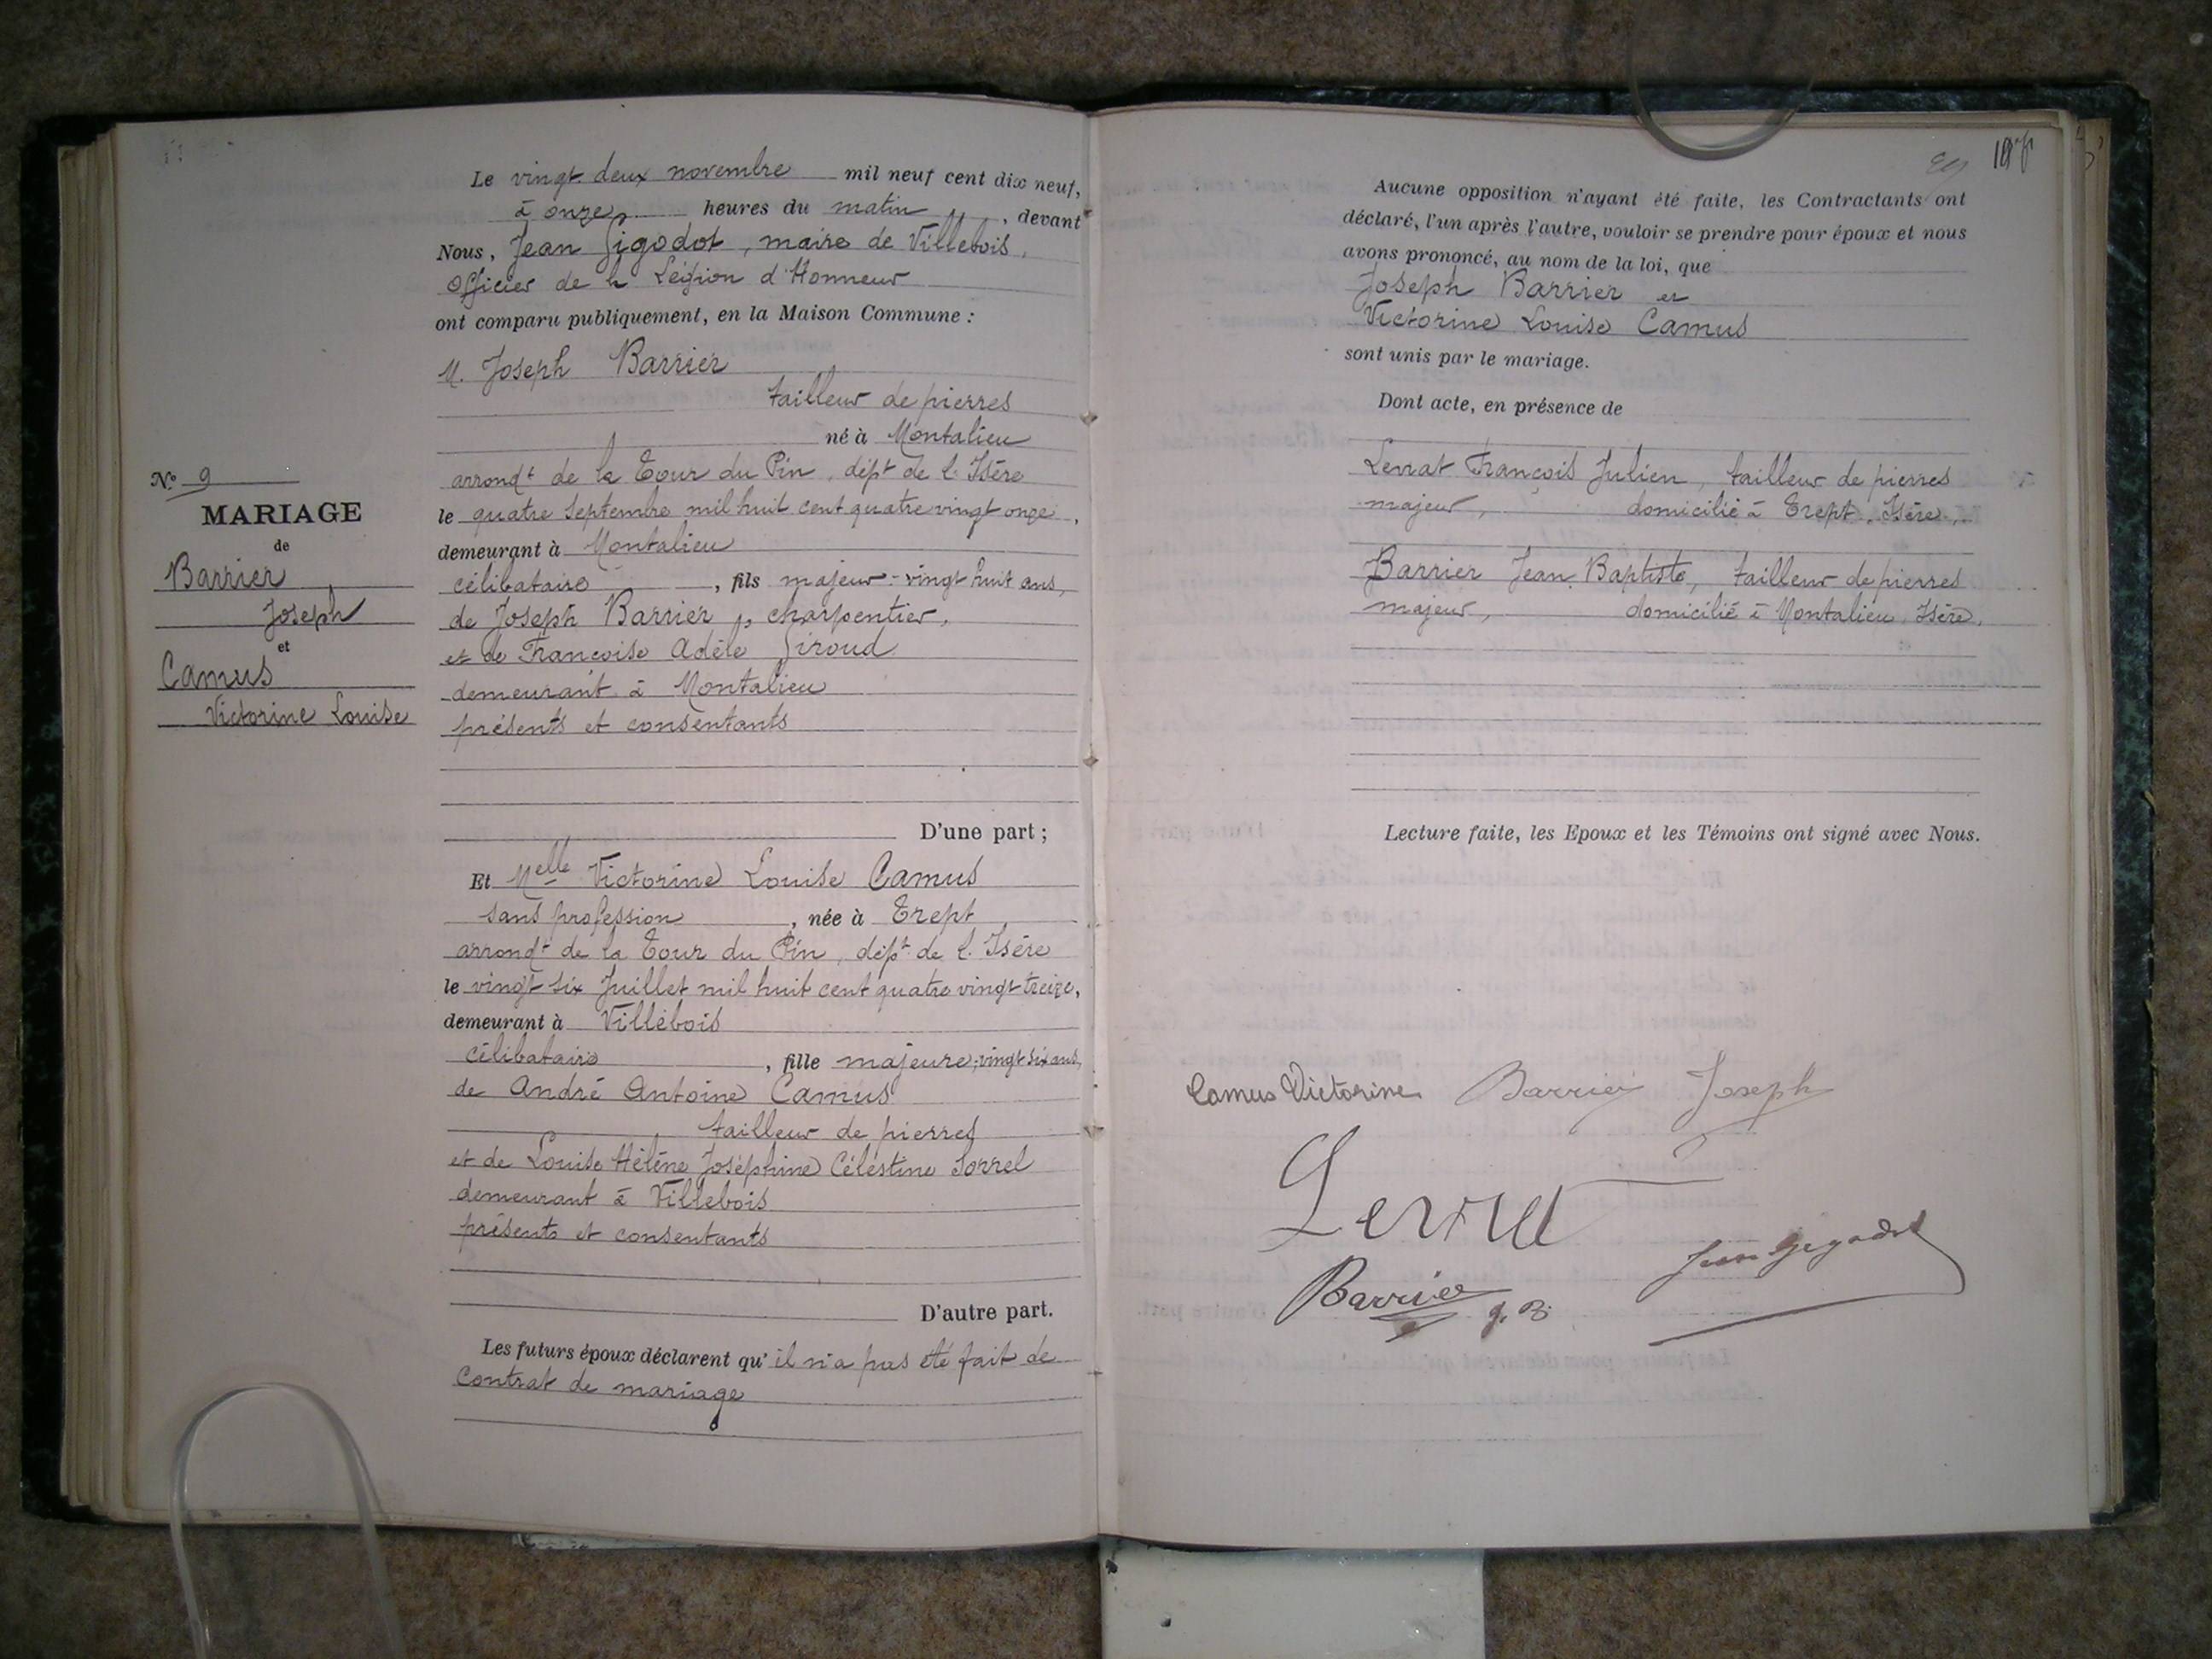 Le vingt deux novembre mil neuf cent dix neuf,
à onze heures du matin, devant
Nous, Jean Gigodot, maire de Villebois,
Officier de la Légion d'Honneur
ont comparu publiquement, en la Maison Commune :
M. Joseph Barrier
tailleur de pierres
né à Montalieu
arrondt de la Tour du Pin, dépt de l'Isère
le quatre Septembre mil huit cent quatre vingt onze,
demeurant à Montalieu
célibataire, fils majeur - vingt huit ans,
de Joseph Barrier, charpentier,
et de Françoise Adèle Giroud
demeurant à Montalieu
présents et consentants
D'une part ;
N.º 9
MARIAGE
de
Barrier
Joseph
et
Camus
Victorine Louise
Et Melle Victorine Louise Camus
sans profession, née à Trept
arrondt de la Tour du Pin, dépt de l'Isère
le vingt six Juillet mil huit cent quatre vingt treize,
demeurant à Villebois
célibataire, fille majeure ; vingt six ans,
de André Antoine Camus
tailleur de pierres
et de Louise Hélène Joséphine Célestine Sorrel
demeurant à Villebois
présents et consentants
D'autre part.
Les futurs époux déclarent qu'il n'a pas été fait de
Contrat de mariage
Aucune opposition n'ayant été faite, les Contractants ont
déclaré, l'un après l'autre, vouloir se prendre pour époux et nous
avons prononcé, au nom de la loi, que
Joseph Barrier et
Victorine Louise Camus
sont unis par le mariage.
Dont acte, en présence de
Lerrat François Julien, tailleur de pierres
majeur, domicilié à Trept, Isère,
Barrier Jean Baptiste, tailleur de pierres
majeur, domicilié à Montalieu, Isère.
Lecture faite, les Epoux et les Témoins ont signé avec Nous.
Camus Victorine Barrier Joseph
Lerrat
Jean Gigodot
Barrier J. B.